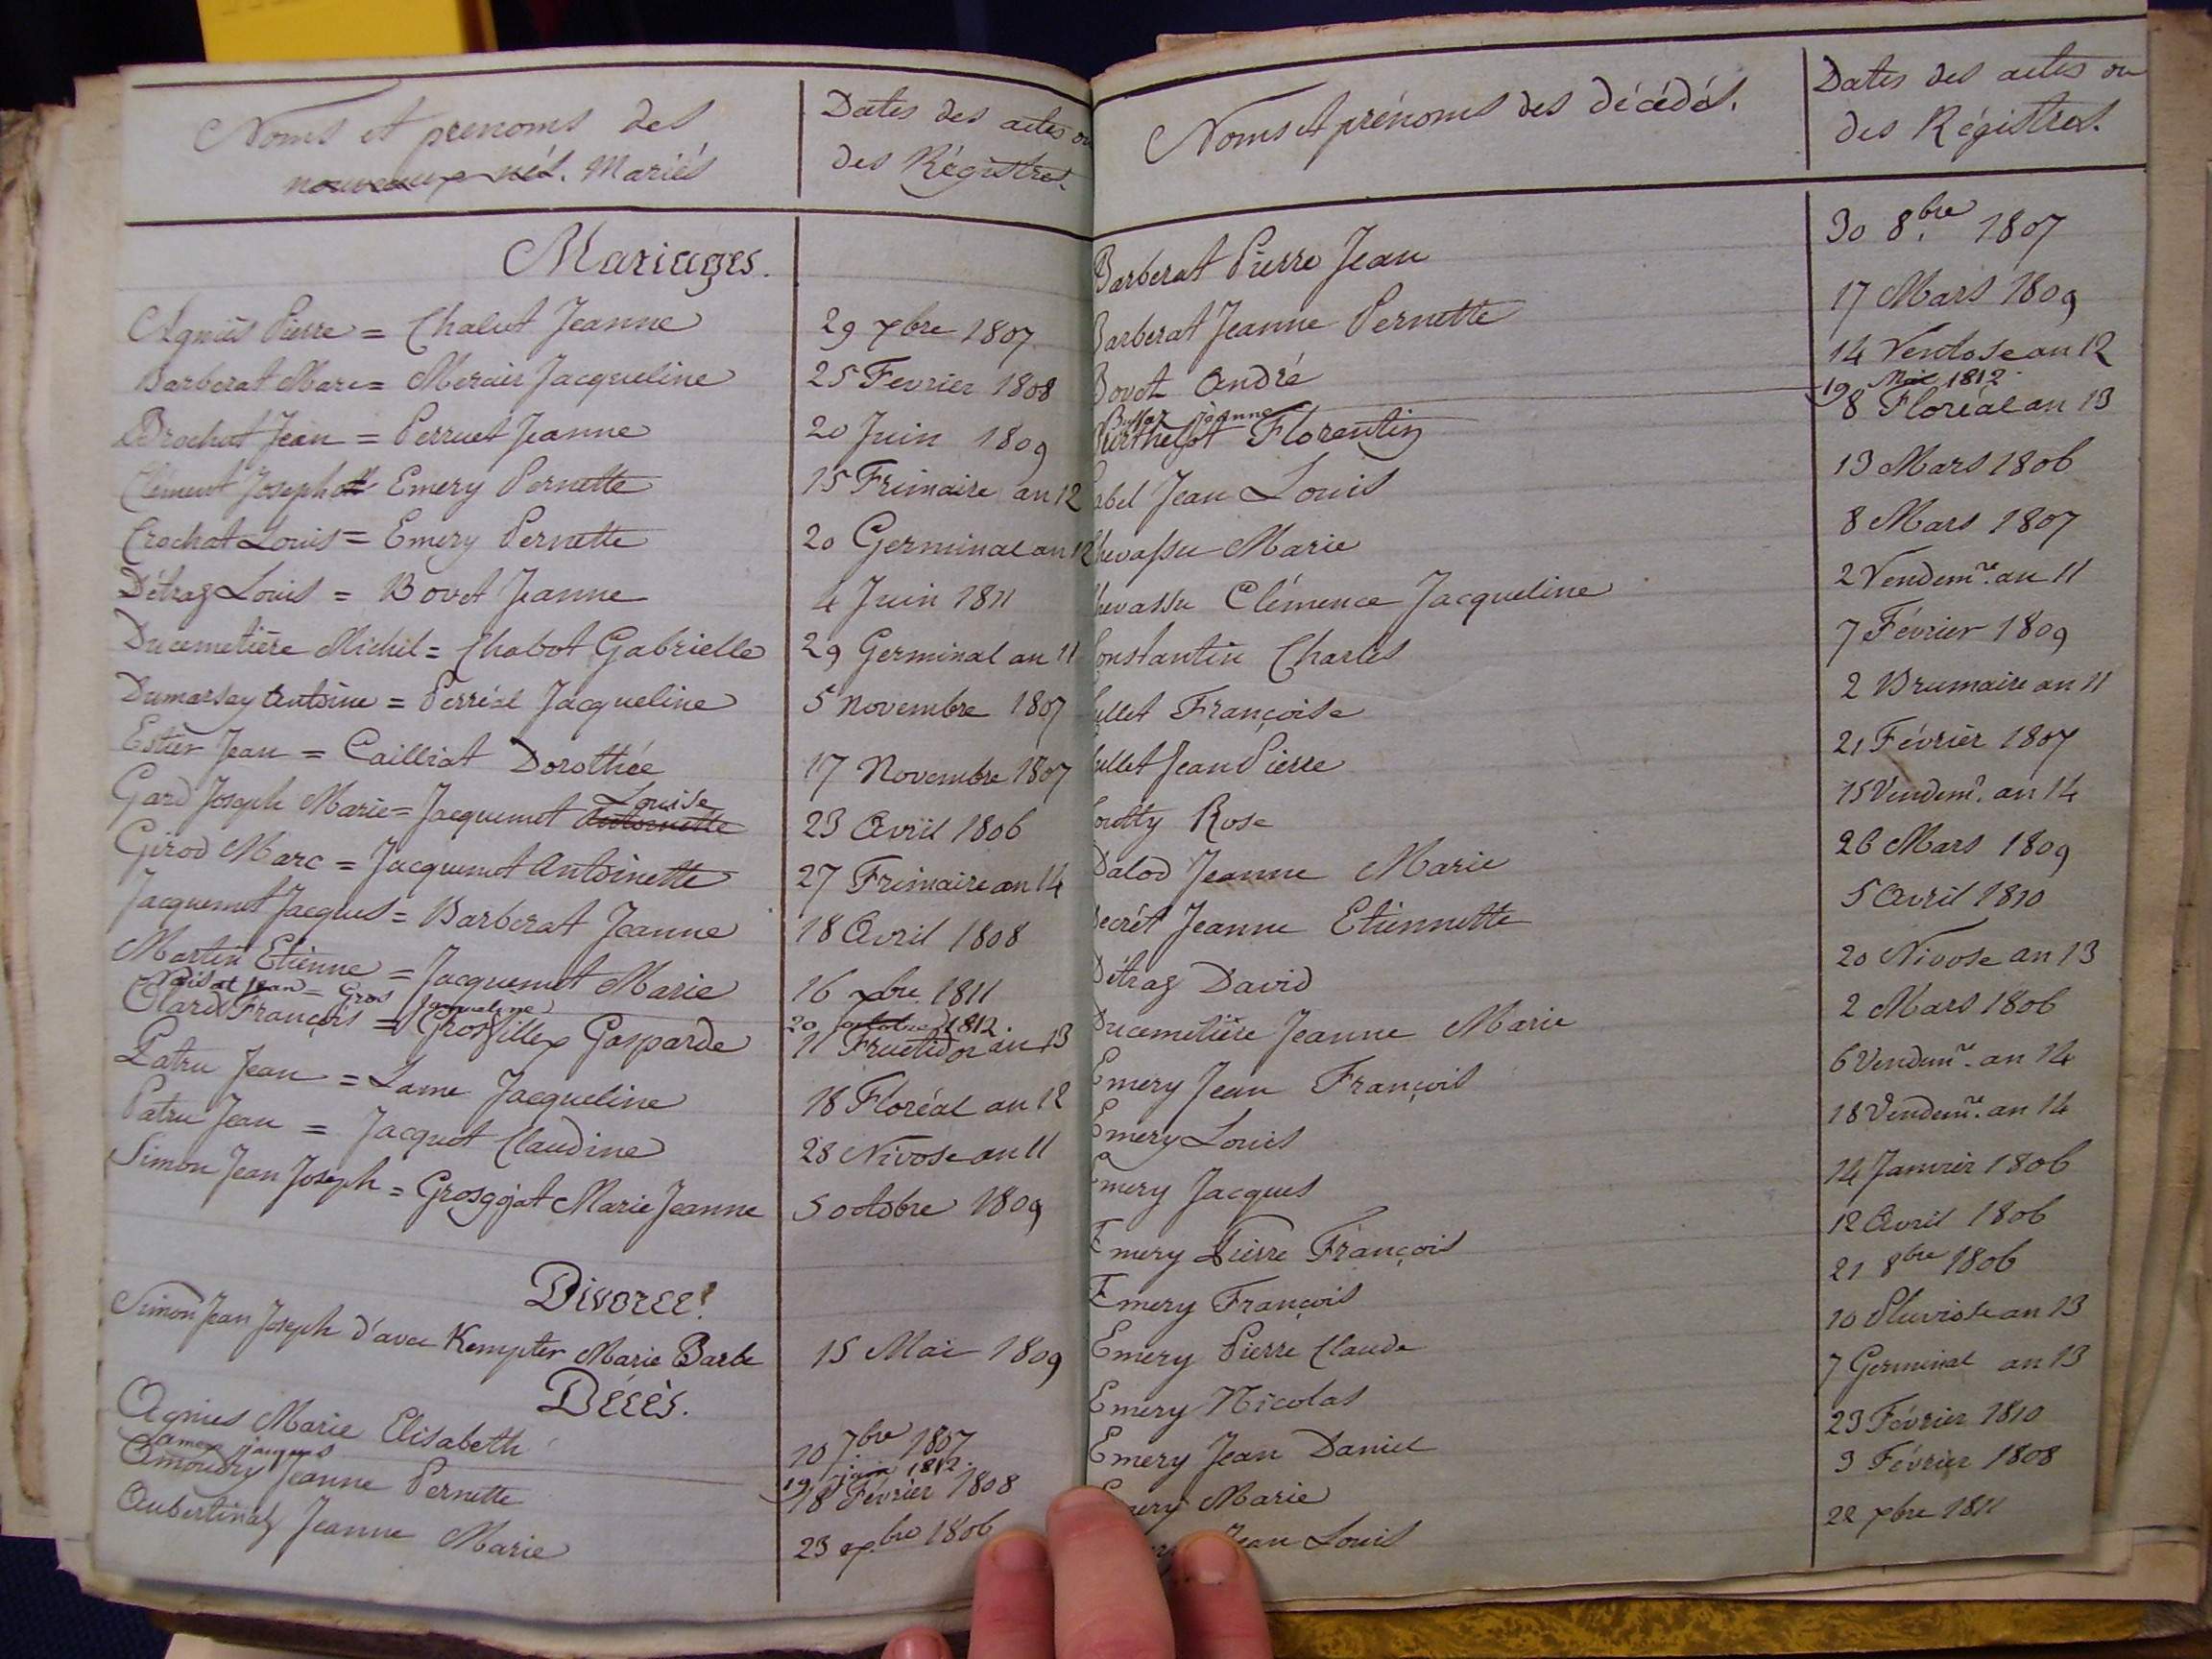 Noms et prenoms des
nouveaux nés. Mariés
Dates des actes ou
des Régistres.
Mariages.
Agniès Pierre = Chalut Jeanne 29 xbre 1807
Barberat Marc = Mercier Jacqueline 25 Fevrier 1808
Brochat Jean = Perruet Jeanne 20 Juin 1809
Clement Joseph Emery Pernette 15 Frimaire an 12
Crochat Louis = Emery Pernette 20 Germinal an 12
Détraz Louis = Bovet Jeanne 4 Juin 1811
Ducemetière Michel = Chabot Gabrielle 29 Germinal an 11
Dumarsay Antoine = Perréal Jacqueline 5 Novembre 1807
Estier Jean = Cailliat Dorothée 17 Novembre 1807
Louise
Gard Joseph Marie = Jacquemet Antoinette 23 Avril 1806
Girod Marc = Jacquemet Antoinette 27 Frimaire an 14
Jacquemet Jacques = Barberat Jeanne 18 Avril 1808
Martin Etienne = Jacquemet Marie 16 xbre 1811
Jean = Gros Jaqueline 20 octobre 1812.
Olard François = Grosfillex Gasparde 11 Fructidor an 13
Patru Jean = Lame Jacqueline 18 Floréal an 12
Patru Jean = Jacquet Claudine 28 Nivose an 11
Simon Jean Joseph = Grosgojat Marie Jeanne 5 octobre 1809
Divorce!
Simon Jean Joseph d'avec Kempter Marie Barbe 15 Mai 1809
Décès.
Agnies Marie Elisabeth 10 7bre 1807
jaques 19 juin 1812.
Amoudry Jeanne Pernette 18 Février 1808
Aubertinaz Jeanne Marie 23 xbre 1806
Noms et prénoms des décédés.
Dates des actes ou
des Régistres.
Barberat Pierre Jean 30 8bre 1807
Barberat Jeanne Pernette 17 Mars 1809
Bovet André 14 Ventose an 12
Jeanne 19 Mai 1812.
Florentin 8 Floréal an 13
abel Jean Louis 13 Mars 1806
hevassu Marie 8 Mars 1807
hevassu Clémence Jacqueline 2 Vendemre. an 11
onstantin Charles 7 Février 1809
ullet Françoise 2 Brumaire an 11
ullet Jean Pierre 21 Février 1807
outty Rose 15 Vendemr. an 14
Dalod Jeanne Marie 26 Mars 1809
Decrét Jeanne Etiennette 5 Avril 1810
Détraz David 20 Nivose an 13
Ducemetière Jeanne Marie 2 Mars 1806
Emery Jean François 6 Vendemre. an 14
Emery Louis 18 Vendemre. an 14
Emery Jacques 14 Janvier 1806
Emery Pierre François 12 Avril 1806
Emery François 21 8bre 1806
Emery Pierre Claude 10 Pluviose an 13
Emery Nicolas 7 Germinal an 13
Emery Jean Daniel 23 Février 1810
Emery Marie 3 Février 1808
Jean Louis 22 xbre 1811